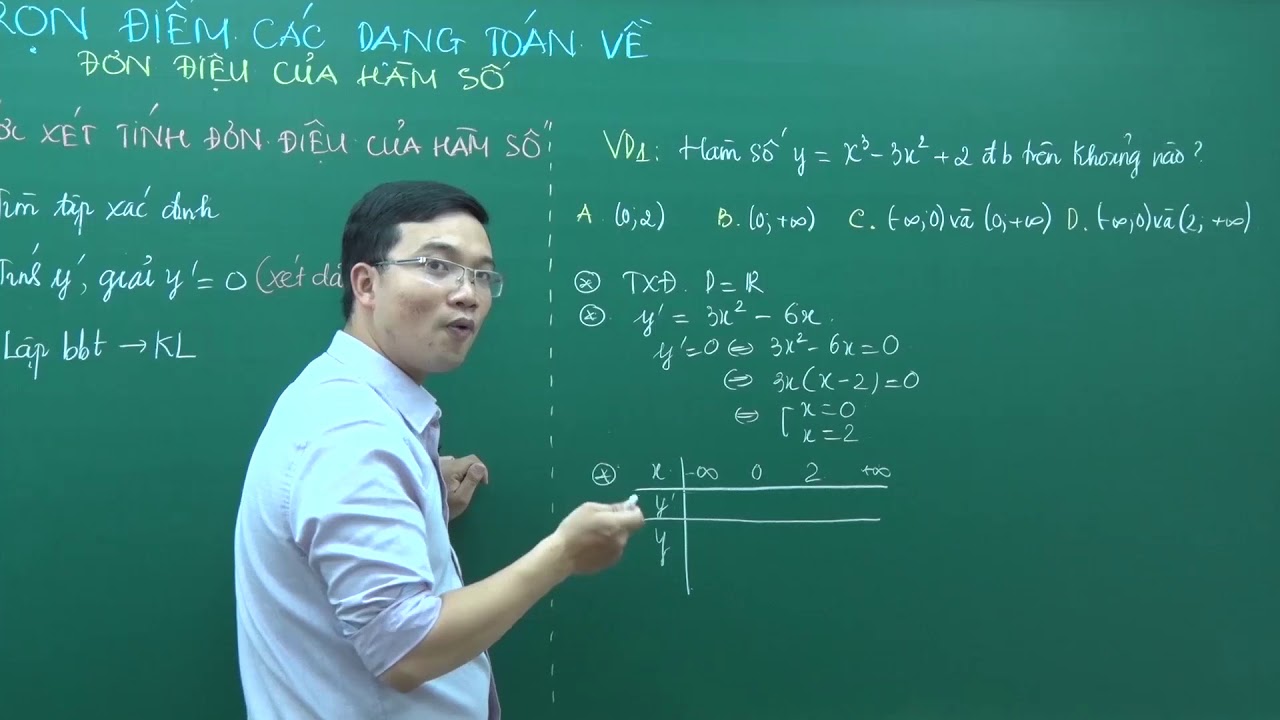 RỌN ĐIỂM CÁC DẠNG TOÁN VỀ
ĐƠN ĐIỆU CỦA HÀM SỐ
ỚC XÉT TÍNH ĐƠN ĐIỆU CỦA HÀM SỐ
Tìm tập xác định
Tính y', giải y' = 0 (xét dấ
Lập bbt → KL
VD1: Hàm số y = x³ - 3x² + 2 đb trên khoảng nào?
A. (0; 2) B. (0; +∞) C. (-∞; 0) và (0; +∞) D. (-∞; 0) và (2; +∞)
⊛ TXĐ. D = ℝ
⊛ y' = 3x² - 6x.
y' = 0 ⇔ 3x² - 6x = 0
⇔ 3x(x - 2) = 0
⇔ [ x = 0
x = 2
⊛ x -∞ 0 2 +∞
y'
y